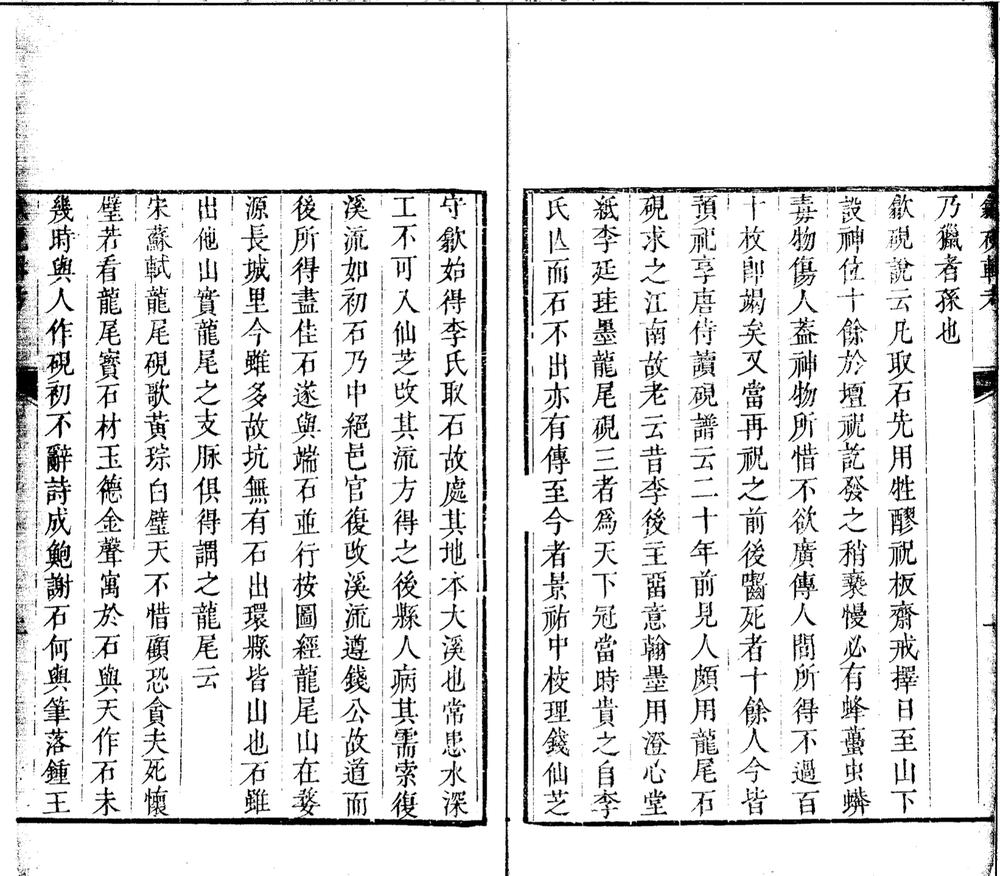 乃獵者孫也
歙硯說云凡取石先用牲醪祝板齋戒擇日至山下
設神位十餘於壇祝訖發之稍䙝慢必有蜂蠆虫蠎
毒物傷人葢神物所惜不欲廣傳人間所得不過百
十枚卽竭矣又當再祝之前後齧死者十餘人今皆
預祀享唐侍讀硯譜云二十年前見人頗用龍尾石
硯求之江南故老云昔李後主畱意翰墨用澄心堂
紙李廷珪墨龍尾硯三者爲天下冠當時貴之自李
氏亾而石不出亦有傳至今者景祐中校理錢仙芝
守歙始得李氏取石故處其地本大溪也常患水深
工不可入仙芝改其流方得之後縣人病其需索復
溪流如初石乃中絕邑官復改溪流遵錢公故道而
後所得盡佳石遂與端石並行按圖經龍尾山在婺
源長城里今雖多故坑無有石出環縣皆山也石雖
出他山實龍尾之支脉俱得謂之龍尾云
宋蘇軾龍尾硯歌黃琮白璧天不惜顧恐貪夫死懷
璧若看龍尾寳石材玉德金聲寓於石與天作石未
幾時與人作硯初不辭詩成鮑謝石何與筆落鍾王